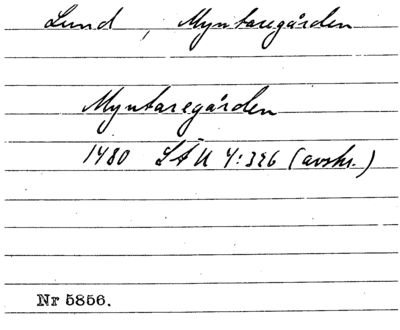 Lund, Myntaregården
Myntaregården
1480 LÄU 4:326 (avskr.)
Nr 5856.